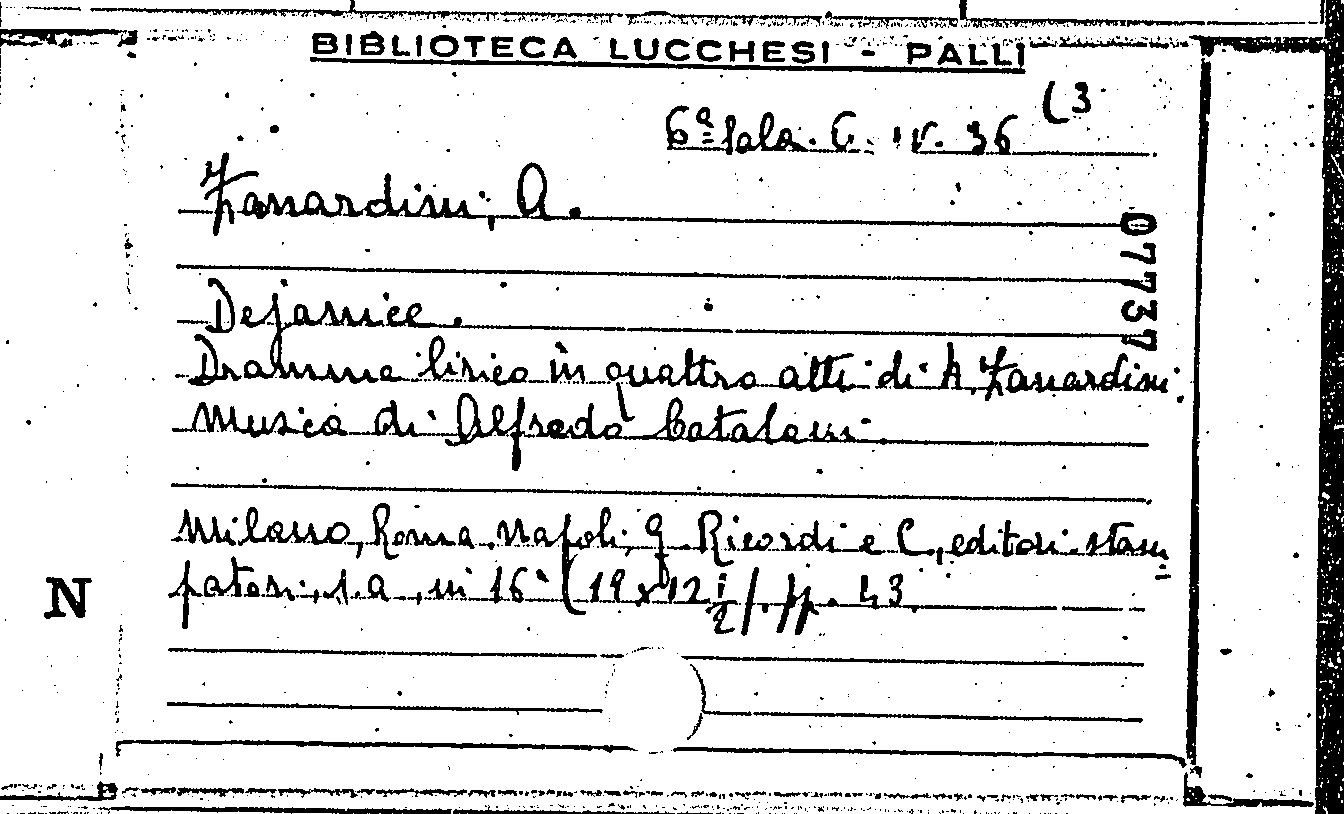 BIBLIOTECA LUCCHESI - PALLI
6ª Sala. C. IV. 36 (3
Zanardini, A.
07737
Dejanice.
Dramma lirico in quattro atti di A. Zanardini.
Musica di Alfredo Catalani.
Milano, Roma, Napoli, G. Ricordi e C., editori-stam
patori, s.a., in 16° (19x12 1/2). pp. 43.
N